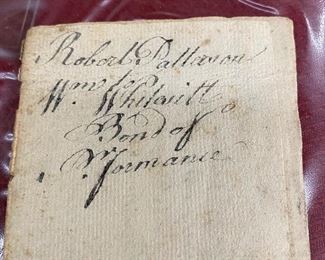 Robert Patterson
Wm. Whitsitt
Bond of
Performance